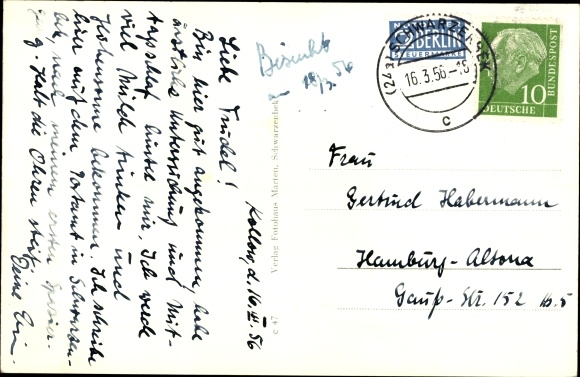 Kollow, d. 16. III. 56
Liebe Trudel!
Bin hier gut angekommen, habe
ärztliche Untersuchung und Mit-
tagsschlaf hinter mir. Ich werde
viel Milch trinken und
Höhensonne bekommen. Ich schreibe
hier auf dem Postamt in Schwarzen-
bek, nach meinem ersten Spazier-
g. Halt die Ohren steif
Deine
Besucht
am 18/3. 56
Verlag Fotohaus Marten, Schwarzenbek
c 47
NOTOPFER
BERLIN
STEUERMARKE
(24a) SCHWARZENBEK
16.3.56-18
c
10
DEUTSCHE
BUNDESPOST
Frau
Gertrud Habermann
Hamburg-Altona
Gauß-Str. 152